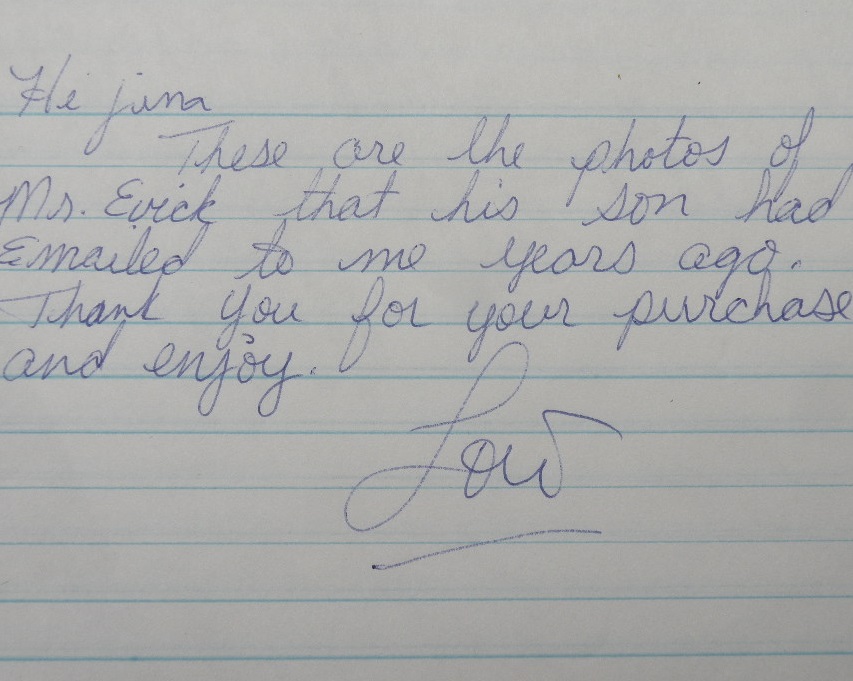 Hi jina
These are the photos of
Mr. Evick that his son had
Emailed to me years ago.
Thank you for your purchase
and enjoy.